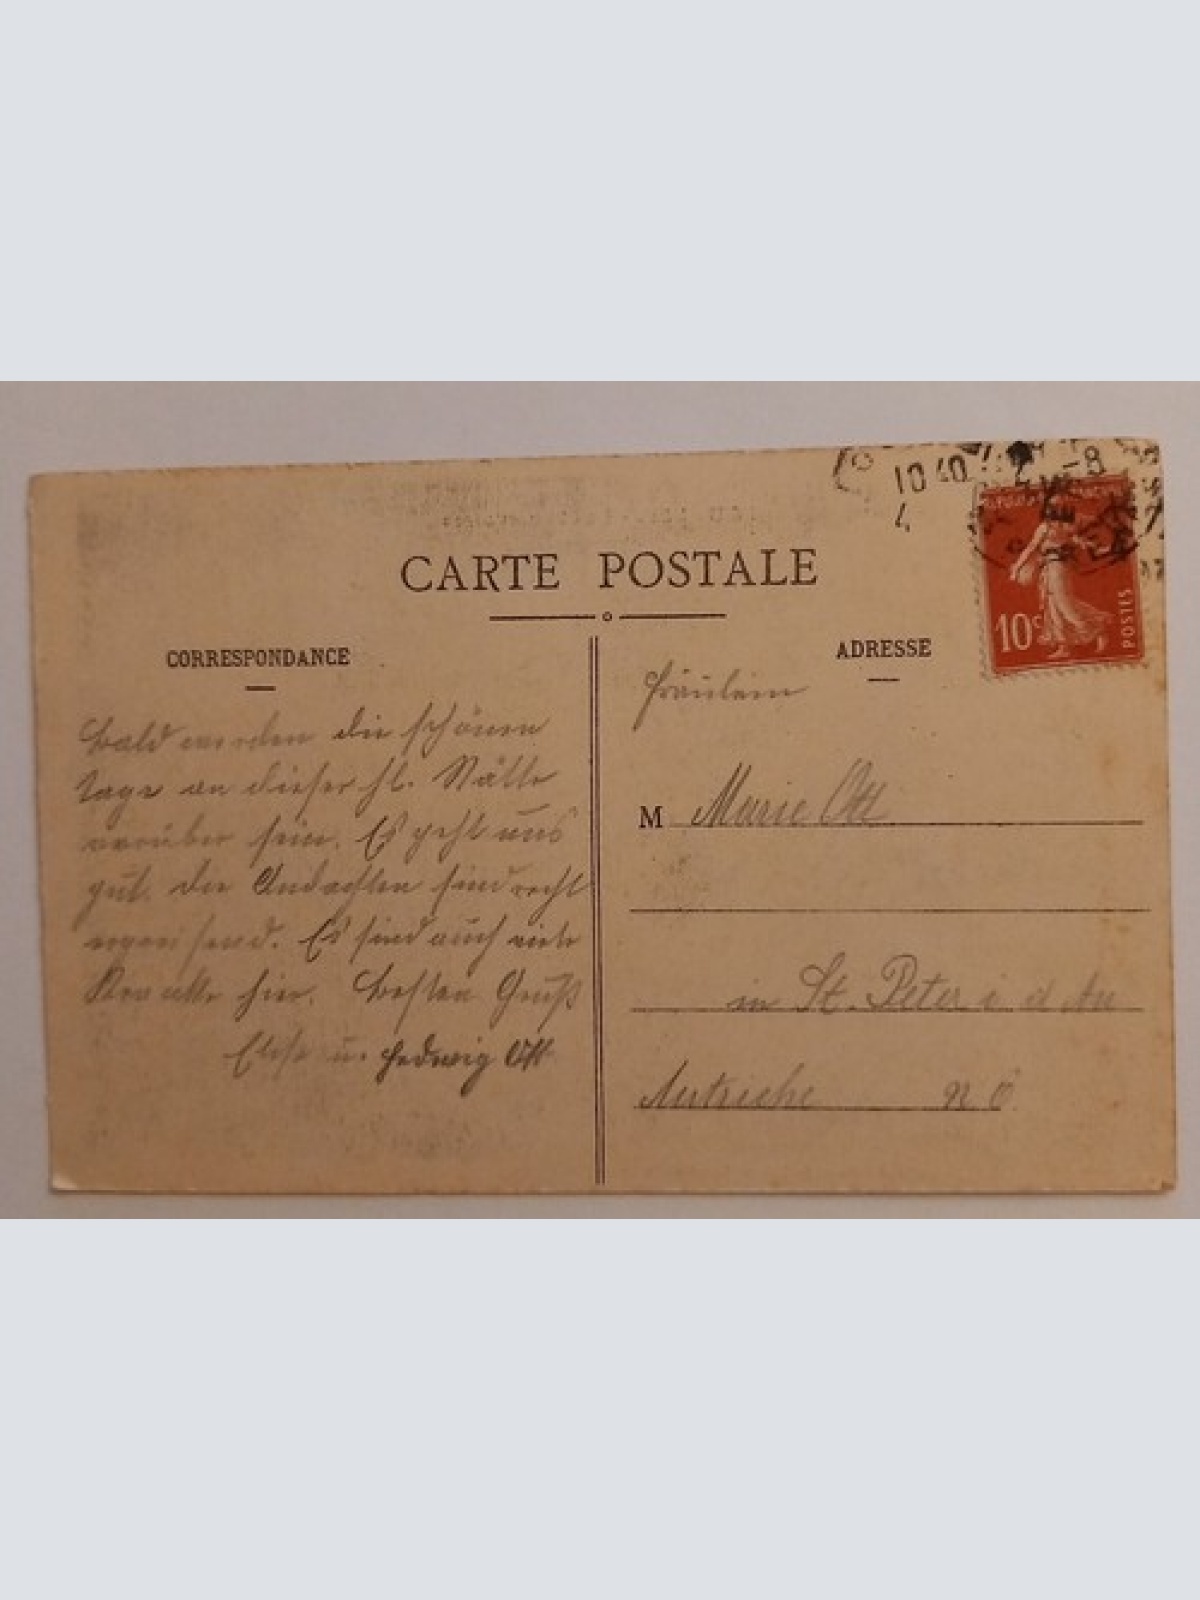 CARTE POSTALE
CORRESPONDANCE
Bald werden die schönen
Tage an dieser hl. Stätte
vorüber sein. Es geht uns
gut. Die Andachten sind recht
ergreifend. Es sind auch viele
Kranke hier. Besten Gruß
Elise u. Hedwig Ott
ADRESSE
10 40
4
10c
POSTES
Fräulein
M Marie Ott
in St. Peter i d Au
Autriche N Ö